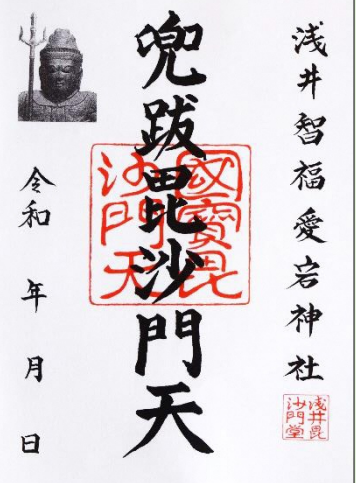 浅井智福愛宕神社
浅井毘
沙門堂
兜跋毘沙門天
國寶毘
沙門天
令和　年　月　日